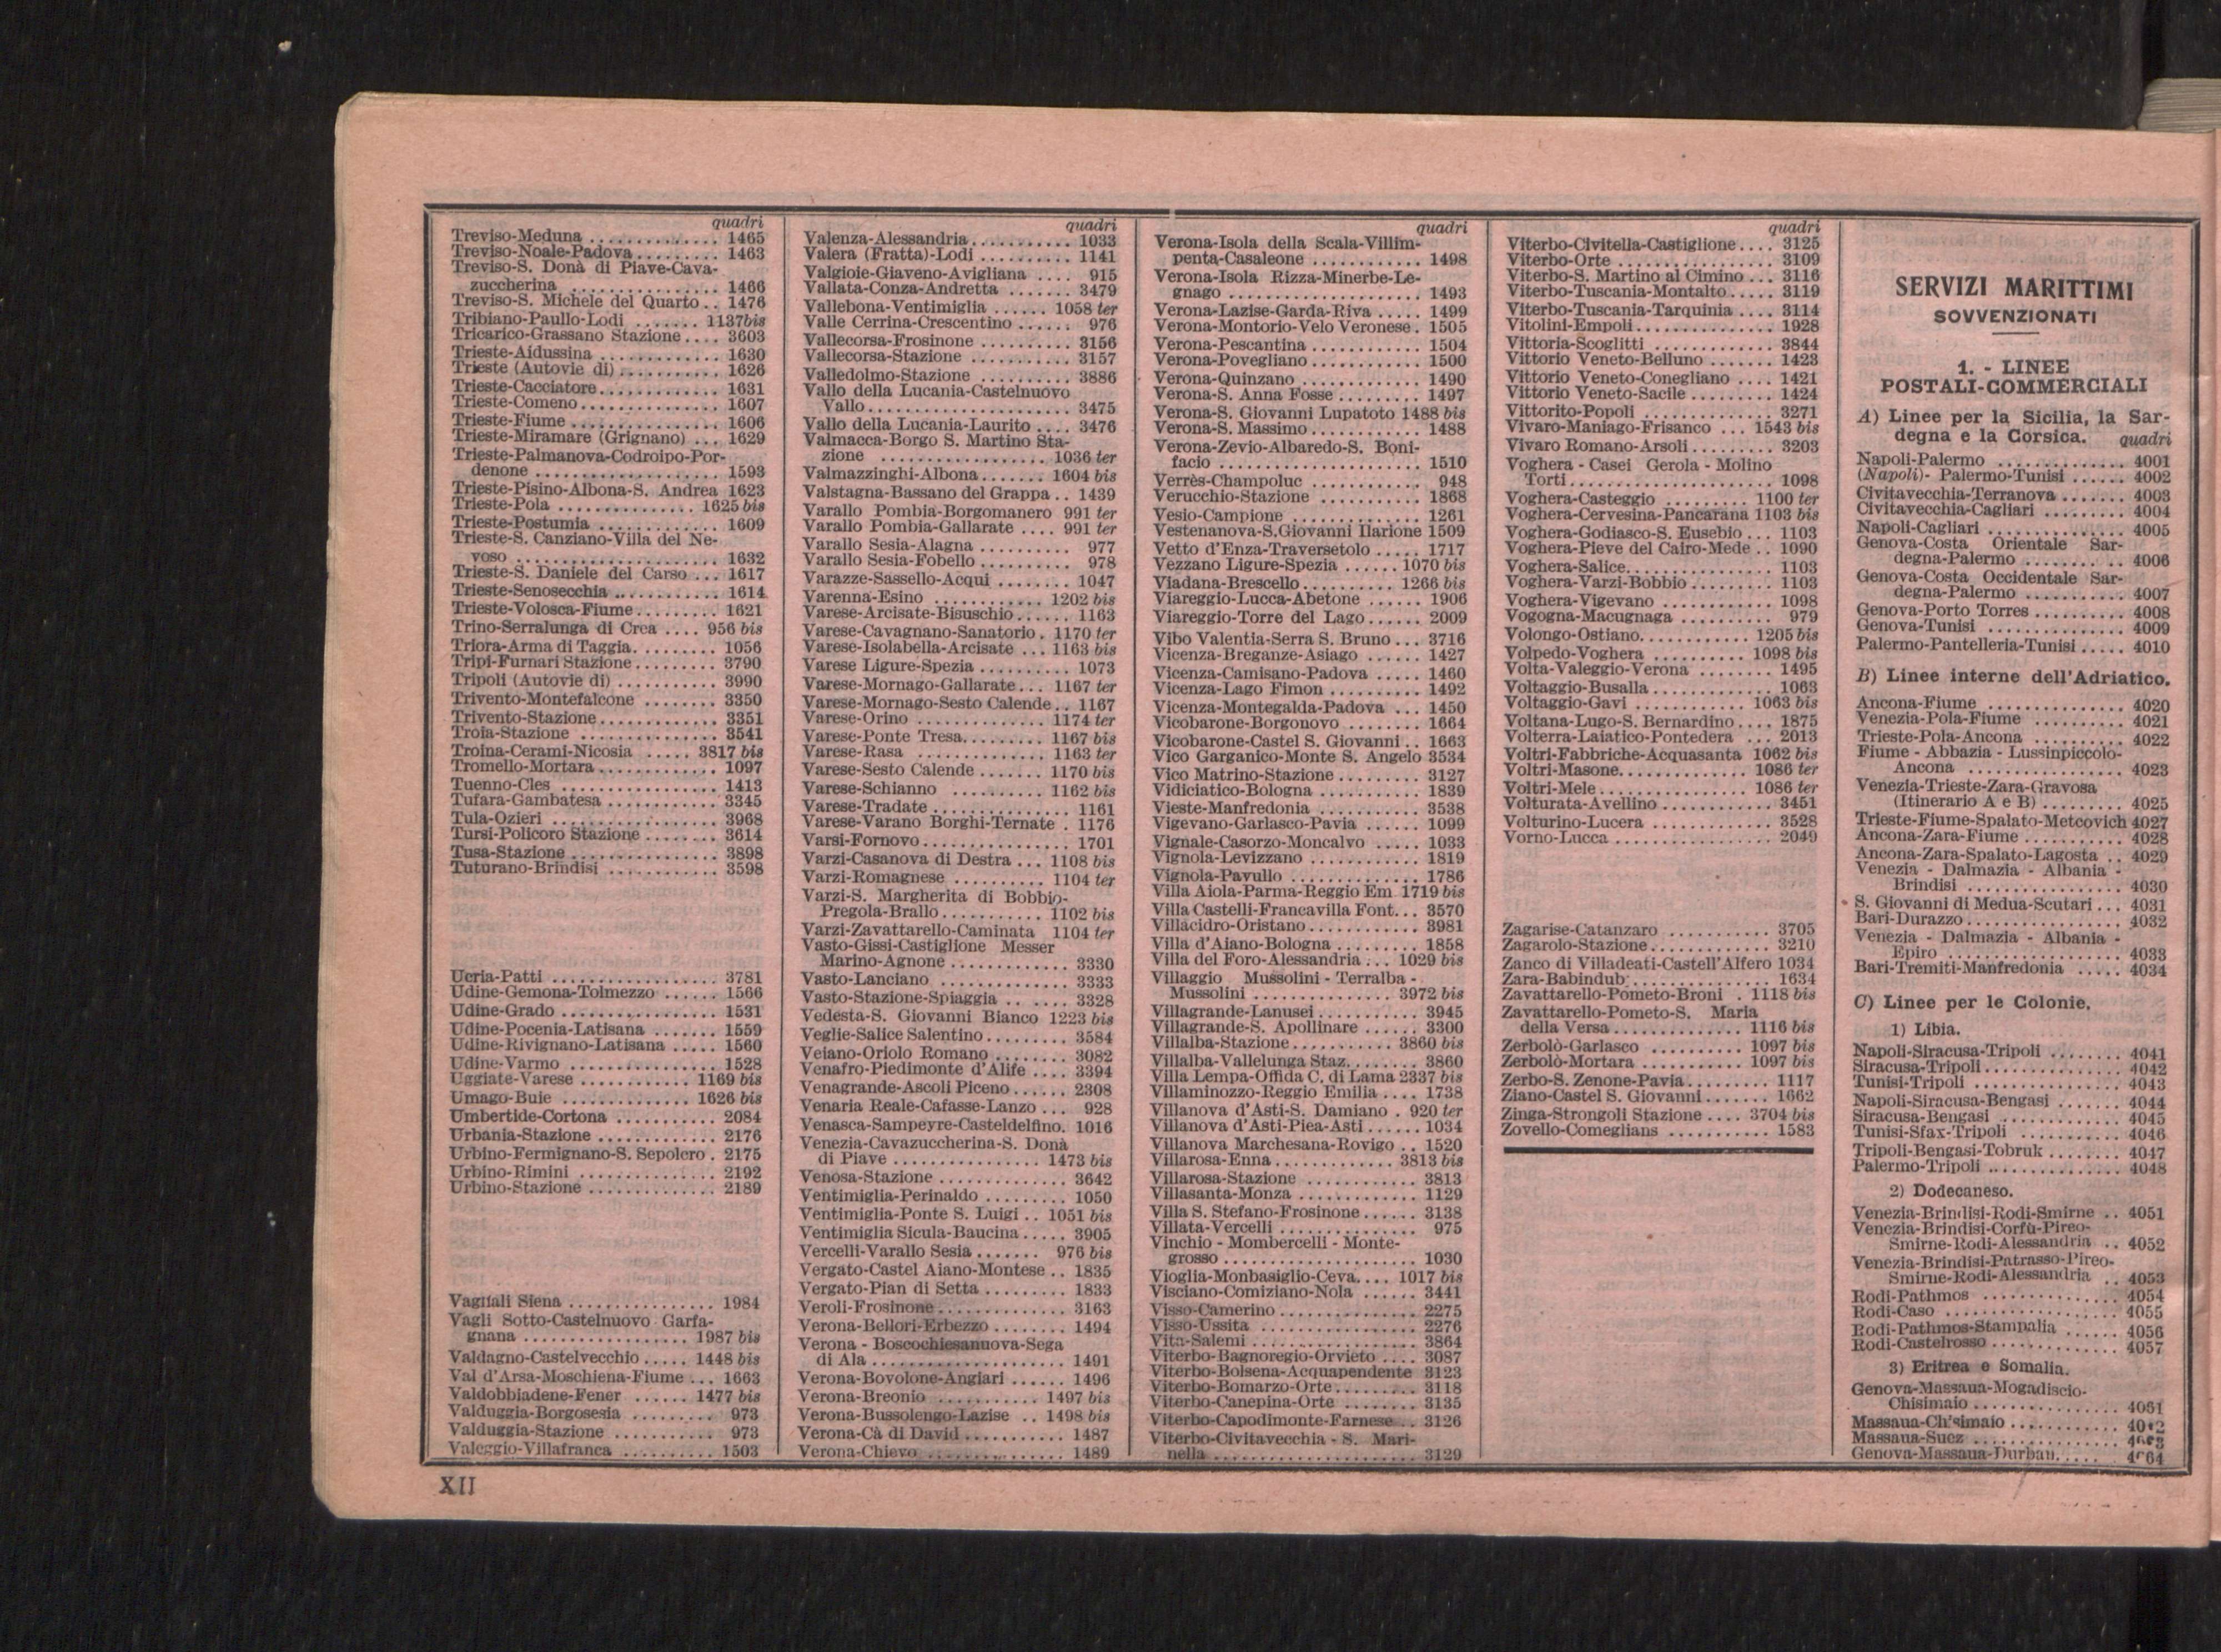 quadri
Treviso-Meduna .............. 1465
Treviso-Noale-Padova ......... 1463
Treviso-S. Donà di Piave-Cava-
zuccherina ................ 1466
Treviso-S. Michele del Quarto .. 1476
Tribiano-Paullo-Lodi ....... 1137bis
Tricarico-Grassano Stazione .... 3603
Trieste-Aidussina ............. 1630
Trieste (Autovie di) ........... 1626
Trieste-Cacciatore ............. 1631
Trieste-Comeno ............... 1607
Trieste-Fiume ................ 1606
Trieste-Miramare (Grignano) ... 1629
Trieste-Palmanova-Codroipo-Por-
denone .................... 1593
Trieste-Pisino-Albona-S. Andrea 1623
Trieste-Pola ............... 1625 bis
Trieste-Postumia ............. 1609
Trieste-S. Canziano-Villa del Ne-
voso ...................... 1632
Trieste-S. Daniele del Carso ... 1617
Trieste-Senosecchia ........... 1614
Trieste-Volosca-Fiume ......... 1621
Trino-Serralunga di Crea .... 956 bis
Triora-Arma di Taggia.......... 1056
Tripi-Furnari Stazione ......... 3790
Tripoli (Autovie di) ........... 3990
Trivento-Montefalcone ........ 3350
Trivento-Stazione ............. 3351
Troia-Stazione ............... 3541
Troina-Cerami-Nicosia ..... 3817 bis
Tromello-Mortara ............. 1097
Tuenno-Cles ................. 1413
Tufara-Gambatesa ............ 3345
Tula-Ozieri ................... 3968
Tursi-Policoro Stazione ........ 3614
Tusa-Stazione ................ 3898
Tuturano-Brindisi ............ 3598
Ucria-Patti ................... 3781
Udine-Gemona-Tolmezzo ...... 1566
Udine-Grado ................. 1531
Udine-Pocenia-Latisana ....... 1559
Udine-Rivignano-Latisana ..... 1560
Udine-Varmo ................ 1528
Uggiate-Varese ............ 1169 bis
Umago-Buie .............. 1626 bis
Umbertide-Cortona ........... 2084
Urbania-Stazione ............. 2176
Urbino-Fermignano-S. Sepolcro . 2175
Urbino-Rimini ............... 2192
Urbino-Stazione .............. 2189
Vagliali Siena ................ 1984
Vagli Sotto-Castelnuovo Garfa-
gnana .................. 1987 bis
Valdagno-Castelvecchio ..... 1448 bis
Val d'Arsa-Moschiena-Fiume ... 1663
Valdobbiadene-Fener ...... 1477 bis
Valduggia-Borgosesia ......... 973
Valduggia-Stazione ........... 973
Valeggio-Villafranca .......... 1503
XII
quadri
Valenza-Alessandria ........... 1033
Valera (Fratta)-Lodi .......... 1141
Valgioie-Giaveno-Avigliana .... 915
Vallata-Conza-Andretta ....... 3479
Vallebona-Ventimiglia ...... 1058 ter
Valle Cerrina-Crescentino ...... 976
Vallecorsa-Frosinone .......... 3156
Vallecorsa-Stazione ........... 3157
Valledolmo-Stazione .......... 3886
Vallo della Lucania-Castelnuovo
Vallo ....................... 3475
Vallo della Lucania-Laurito .... 3476
Valmacca-Borgo S. Martino Sta-
zione .................. 1036 ter
Valmazzinghi-Albona ....... 1604 bis
Valstagna-Bassano del Grappa .. 1439
Varallo Pombia-Borgomanero 991 ter
Varallo Pombia-Gallarate .... 991 ter
Varallo Sesia-Alagna .......... 977
Varallo Sesia-Fobello .......... 978
Varazze-Sassello-Acqui ........ 1047
Varenna-Esino ............ 1202 bis
Varese-Arcisate-Bisuschio ...... 1163
Varese-Cavagnano-Sanatorio . 1170 ter
Varese-Isolabella-Arcisate ... 1163 bis
Varese Ligure-Spezia .......... 1073
Varese-Mornago-Gallarate ... 1167 ter
Varese-Mornago-Sesto Calende .. 1167
Varese-Orino .............. 1174 ter
Varese-Ponte Tresa......... 1167 bis
Varese-Rasa .............. 1163 ter
Varese-Sesto Calende ....... 1170 bis
Varese-Schianno .......... 1162 bis
Varese-Tradate ............... 1161
Varese-Varano Borghi-Ternate . 1176
Varsi-Fornovo ................ 1701
Varzi-Casanova di Destra ... 1108 bis
Varzi-Romagnese .......... 1104 ter
Varzi-S. Margherita di Bobbio-
Pregola-Brallo ........... 1102 bis
Varzi-Zavattarello-Caminata 1104 ter
Vasto-Gissi-Castiglione Messer
Marino-Agnone ............. 3330
Vasto-Lanciano .............. 3333
Vasto-Stazione-Spiaggia ....... 3328
Vedesta-S. Giovanni Bianco 1223 bis
Veglie-Salice Salentino ......... 3584
Veiano-Oriolo Romano ........ 3082
Venafro-Piedimonte d'Alife .... 3394
Venagrande-Ascoli Piceno ...... 2308
Venaria Reale-Cafasse-Lanzo ... 928
Venasca-Sampeyre-Casteldelfino. 1016
Venezia-Cavazuccherina-S. Donà
di Piave ................ 1473 bis
Venosa-Stazione .............. 3642
Ventimiglia-Perinaldo ......... 1050
Ventimiglia-Ponte S. Luigi .. 1051 bis
Ventimiglia Sicula-Baucina ..... 3905
Vercelli-Varallo Sesia ....... 976 bis
Vergato-Castel Aiano-Montese .. 1835
Vergato-Pian di Setta ......... 1833
Veroli-Frosinone .............. 3163
Verona-Bellori-Erbezzo ........ 1494
Verona - Boscochiesanuova-Sega
di Ala ..................... 1491
Verona-Bovolone-Angiari ...... 1496
Verona-Breonio ........... 1497 bis
Verona-Bussolengo-Lazise .. 1498 bis
Verona-Cà di David ........... 1487
Verona-Chievo ............... 1489
quadri
Verona-Isola della Scala-Villim-
penta-Casaleone ............ 1498
Verona-Isola Rizza-Minerbe-Le-
gnago .................... 1493
Verona-Lazise-Garda-Riva ..... 1499
Verona-Montorio-Velo Veronese . 1505
Verona-Pescantina ............ 1504
Verona-Povegliano ............ 1500
Verona-Quinzano ............. 1490
Verona-S. Anna Fosse ......... 1497
Verona-S. Giovanni Lupatoto 1488 bis
Verona-S. Massimo ........... 1488
Verona-Zevio-Albaredo-S. Boni-
facio ...................... 1510
Verrès-Champoluc ............ 948
Verucchio-Stazione ........... 1868
Vesio-Campione .............. 1261
Vestenanova-S.Giovanni Ilarione 1509
Vetto d'Enza-Traversetolo ..... 1717
Vezzano Ligure-Spezia ...... 1070 bis
Viadana-Brescello ............ 1266 bis
Viareggio-Lucca-Abetone ...... 1906
Viareggio-Torre del Lago ...... 2009
Vibo Valentia-Serra S. Bruno ... 3716
Vicenza-Breganze-Asiago ...... 1427
Vicenza-Camisano-Padova ..... 1460
Vicenza-Lago Fimon .......... 1492
Vicenza-Montegalda-Padova ... 1450
Vicobarone-Borgonovo ........ 1664
Vicobarone-Castel S. Giovanni .. 1663
Vico Garganico-Monte S. Angelo 3534
Vico Matrino-Stazione ......... 3127
Vidiciatico-Bologna ........... 1839
Vieste-Manfredonia ........... 3538
Vigevano-Garlasco-Pavia ...... 1099
Vignale-Casorzo-Moncalvo ..... 1033
Vignola-Levizzano ............ 1819
Vignola-Pavullo .............. 1786
Villa Aiola-Parma-Reggio Em 1719 bis
Villa Castelli-Francavilla Font... 3570
Villacidro-Oristano ............ 3981
Villa d'Aiano-Bologna ......... 1858
Villa del Foro-Alessandria ... 1029 bis
Villaggio Mussolini - Terralba -
Mussolini ............... 3972 bis
Villagrande-Lanusei ........... 3945
Villagrande-S. Apollinare ...... 3300
Villalba-Stazione ........... 3860 bis
Villalba-Vallelunga Staz........ 3860
Villa Lempa-Offida C. di Lama 2337 bis
Villaminozzo-Reggio Emilia .... 1738
Villanova d'Asti-S. Damiano . 920 ter
Villanova d'Asti-Piea-Asti ...... 1034
Villanova Marchesana-Rovigo .. 1520
Villarosa-Enna ............. 3813 bis
Villarosa-Stazione ............ 3813
Villasanta-Monza ............. 1129
Villa S. Stefano-Frosinone ...... 3138
Villata-Vercelli ............... 975
Vinchio - Mombercelli - Monte-
grosso ..................... 1030
Vioglia-Monbasiglio-Ceva.... 1017 bis
Visciano-Comiziano-Nola ...... 3441
Visso-Camerino ............... 2275
Visso-Ussita ................. 2276
Vita-Salemi .................. 3864
Viterbo-Bagnoregio-Orvieto .... 3087
Viterbo-Bolsena-Acquapendente 3123
Viterbo-Bomarzo-Orte ......... 3118
Viterbo-Canepina-Orte ........ 3135
Viterbo-Capodimonte-Farnese .. 3126
Viterbo-Civitavecchia - S. Mari-
nella ...................... 3129
quadri
Viterbo-Civitella-Castiglione .... 3125
Viterbo-Orte ................. 3109
Viterbo-S. Martino al Cimino ... 3116
Viterbo-Tuscania-Montalto ..... 3119
Viterbo-Tuscania-Tarquinia .... 3114
Vitolini-Empoli ............... 1928
Vittoria-Scoglitti ............. 3844
Vittorio Veneto-Belluno ....... 1423
Vittorio Veneto-Conegliano .... 1421
Vittorio Veneto-Sacile ......... 1424
Vittorito-Popoli .............. 3271
Vivaro-Maniago-Frisanco ... 1543 bis
Vivaro Romano-Arsoli ......... 3203
Voghera - Casei Gerola - Molino
Torti ....................... 1098
Voghera-Casteggio ......... 1100 ter
Voghera-Cervesina-Pancarana 1103 bis
Voghera-Godiasco-S. Eusebio ... 1103
Voghera-Pieve del Cairo-Mede .. 1090
Voghera-Salice ................ 1103
Voghera-Varzi-Bobbio ......... 1103
Voghera-Vigevano ............ 1098
Vogogna-Macugnaga .......... 979
Volongo-Ostiano............ 1205 bis
Volpedo-Voghera .......... 1098 bis
Volta-Valeggio-Verona ........ 1495
Voltaggio-Busalla ............. 1063
Voltaggio-Gavi ............ 1063 bis
Voltana-Lugo-S. Bernardino .... 1875
Volterra-Laiatico-Pontedera ... 2013
Voltri-Fabbriche-Acquasanta 1062 bis
Voltri-Masone.............. 1086 ter
Voltri-Mele ................ 1086 ter
Volturata-Avellino ............ 3451
Volturino-Lucera ............. 3528
Vorno-Lucca ................. 2049
Zagarise-Catanzaro ........... 3705
Zagarolo-Stazione ............. 3210
Zanco di Villadeati-Castell'Alfero 1034
Zara-Babindub ............... 1634
Zavattarello-Pometo-Broni . 1118 bis
Zavattarello-Pometo-S. Maria
della Versa .............. 1116 bis
Zerbolò-Garlasco .......... 1097 bis
Zerbolò-Mortara .......... 1097 bis
Zerbo-S. Zenone-Pavia ......... 1117
Ziano-Castel S. Giovanni ....... 1662
Zinga-Strongoli Stazione .... 3704 bis
Zovello-Comeglians ........... 1583
SERVIZI MARITTIMI
SOVVENZIONATI
1. - LINEE
POSTALI-COMMERCIALI
A) Linee per la Sicilia, la Sar-
degna e la Corsica. quadri
Napoli-Palermo .............. 4001
(Napoli)- Palermo-Tunisi ...... 4002
Civitavecchia-Terranova ....... 4003
Civitavecchia-Cagliari ......... 4004
Napoli-Cagliari ............... 4005
Genova-Costa Orientale Sar-
degna-Palermo ........... 4006
Genova-Costa Occidentale Sar-
degna-Palermo ........... 4007
Genova-Porto Torres .......... 4008
Genova-Tunisi ............... 4009
Palermo-Pantelleria-Tunisi ..... 4010
B) Linee interne dell'Adriatico.
Ancona-Fiume ............... 4020
Venezia-Pola-Fiume .......... 4021
Trieste-Pola-Ancona .......... 4022
Fiume - Abbazia - Lussinpiccolo-
Ancona ................. 4023
Venezia-Trieste-Zara-Gravosa
(Itinerario A e B) ......... 4025
Trieste-Fiume-Spalato-Metcovich 4027
Ancona-Zara-Fiume ........... 4028
Ancona-Zara-Spalato-Lagosta .. 4029
Venezia - Dalmazia - Albania -
Brindisi ................. 4030
S. Giovanni di Medua-Scutari ... 4031
Bari-Durazzo ................. 4032
Venezia - Dalmazia - Albania -
Epiro ................... 4033
Bari-Tremiti-Manfredonia ..... 4034
C) Linee per le Colonie.
1) Libia.
Napoli-Siracusa-Tripoli ........ 4041
Siracusa-Tripoli ............... 4042
Tunisi-Tripoli ................ 4043
Napoli-Siracusa-Bengasi ....... 4044
Siracusa-Bengasi ............. 4045
Tunisi-Sfax-Tripoli ........... 4046
Tripoli-Bengasi-Tobruk ........ 4047
Palermo-Tripoli ............... 4048
2) Dodecaneso.
Venezia-Brindisi-Rodi-Smirne .. 4051
Venezia-Brindisi-Corfù-Pireo-
Smirne-Rodi-Alessandria .. 4052
Venezia-Brindisi-Patrasso-Pireo-
Smirne-Rodi-Alessandria .. 4053
Rodi-Pathmos ................ 4054
Rodi-Caso ................... 4055
Rodi-Pathmos-Stampalia ...... 4056
Rodi-Castelrosso .............. 4057
3) Eritrea e Somalia.
Genova-Massaua-Mogadiscio-
Chisimaio ................ 4061
Massaua-Chisimaio ...........
Massaua-Suez ................
Genova-Massaua-Durban.....